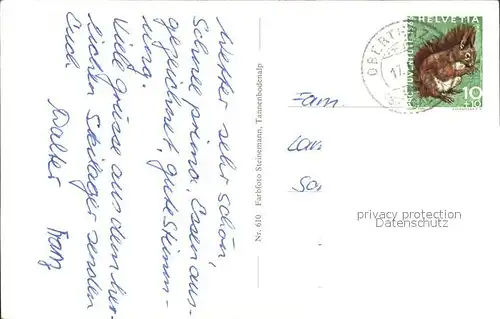 Wetter sehr schön,
Schnee prima, Essen aus-
gezeichnet, gute Stimm-
ung.
Viele Grüsse aus dem herr-
lichen Skilager senden
Euch
Walter Franz
Nr. 610 Farbfoto Steinemann, Tannenbodenalp
HELVETIA
PRO JUVENTUTE
10
+10
OBERTERZEN
17.
Fam.
privacy protection
Datenschutz